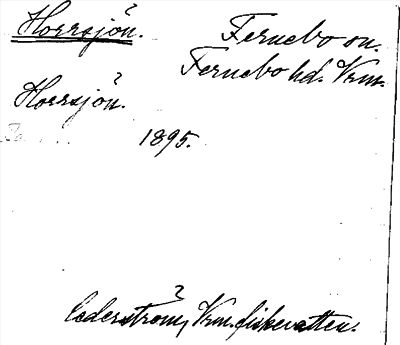 Horrsjön. Fernebo sn.
Fernebo hd. Vrm.
Horrsjön.
1895.
Cederström, Vrm. fiskevatten.